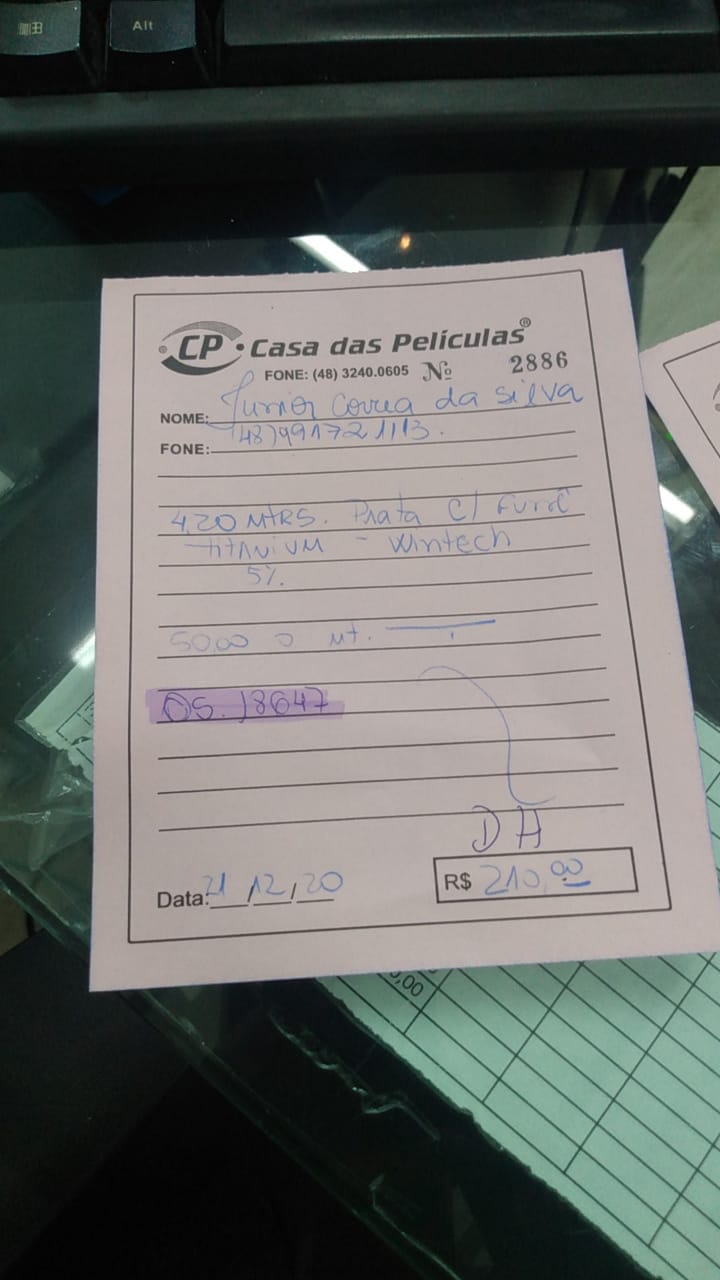 Alt
CP Casa das Películas®
FONE: (48) 3240.0605 Nº 2886
NOME: Junior Correa da Silva
FONE: (48) 991721113.
4,20 MTRS. Prata C/ Fumê
TITANIUM - Wintech
5%.
50,00 o mt.
OS. 18647
DH
Data: 21/12/20 R$ 210,00
0,00